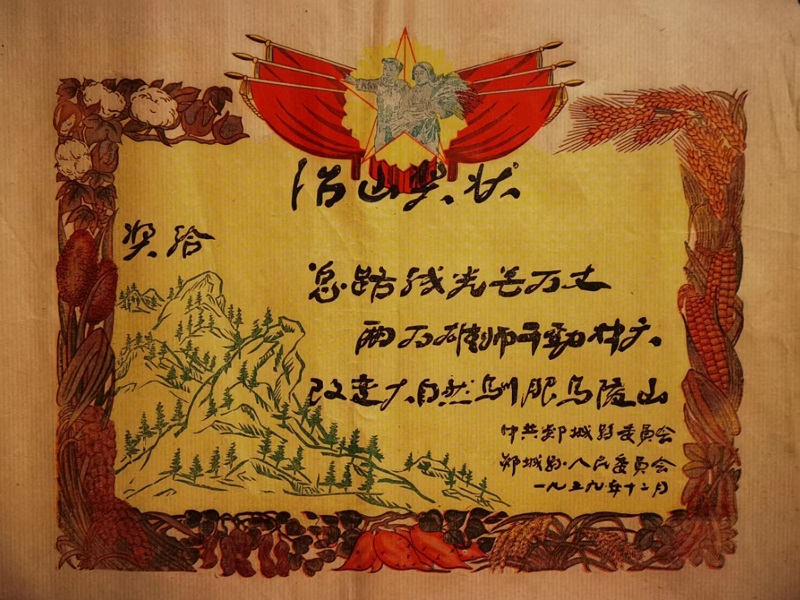 治山奖状
奖给
总路线光芒万丈
两万雄师干劲大
改变大自然驯服马陵山
中共郯城县委员会
郯城县人民委员会
一九五九年十二月